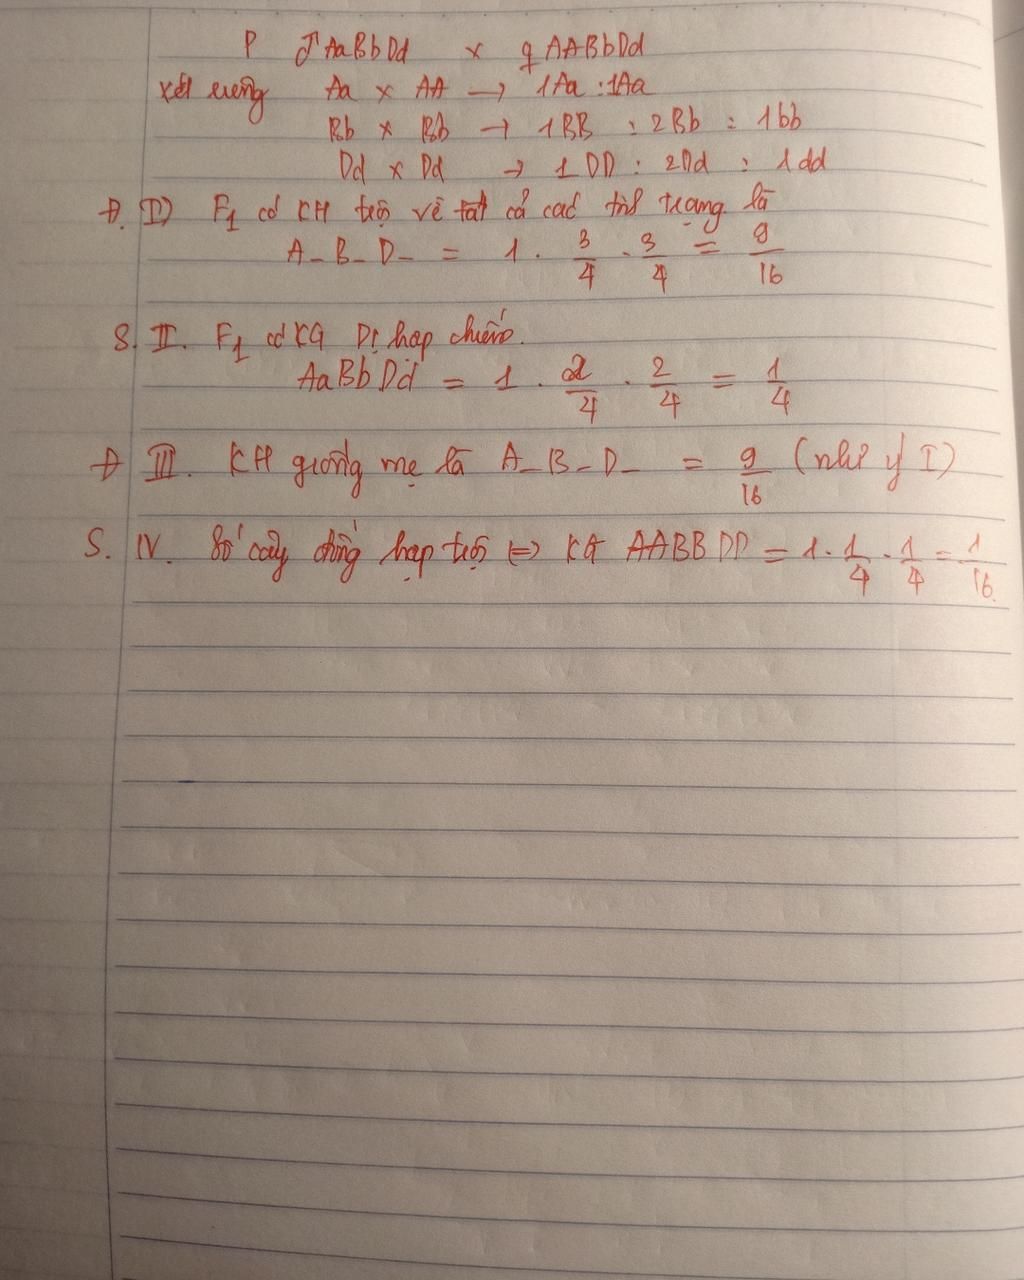 P ♂ AaBbDd x ♀ AABbDd
Xét riêng Aa x AA → 1Aa : 1Aa
Bb x Bb → 1BB : 2Bb : 1bb
Dd x Dd → 1DD : 2Dd : 1dd
Đ. I) F1 có KH trội về tất cả các tính trạng là
A_B_D_ = 1 . 3/4 . 3/4 = 9/16
S. II. F1 có KG Dị hợp chiếm.
AaBbDd = 1 . 2/4 . 2/4 = 1/4
Đ III. KH giống mẹ là A_B_D_ = 9/16 (như ý I)
S. IV. Số cây đồng hợp trội ⇔ KG AABBDD = 1 . 1/4 . 1/4 = 1/16.